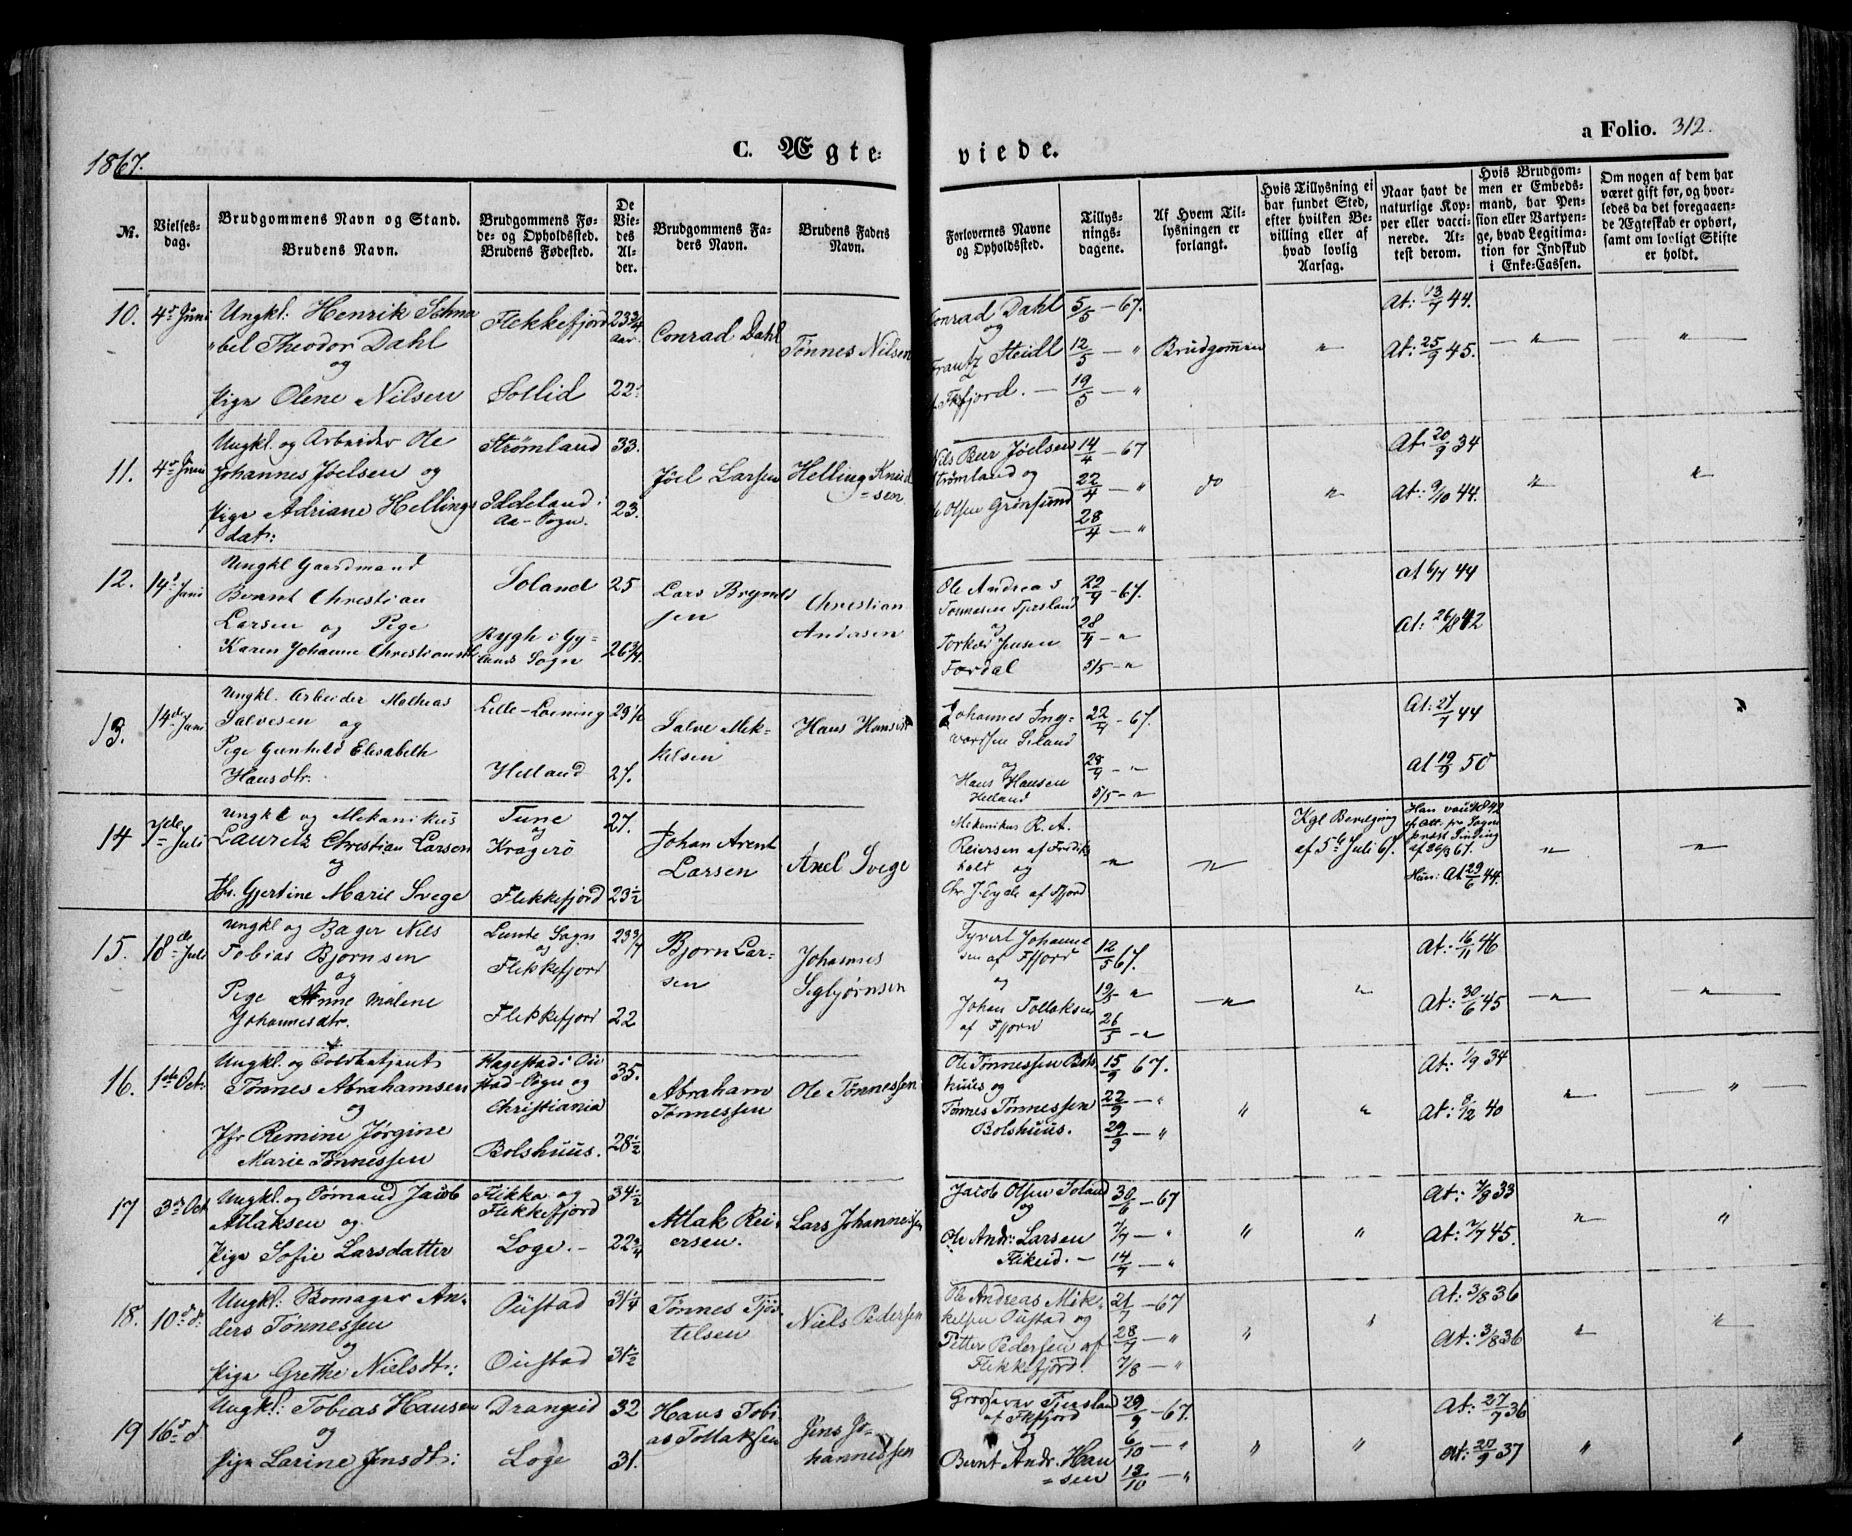 1867.
C. Ægte=
viede.
a Folio. 312.
№.
Vielses-
dag.
Brudgommens Navn og Stand.
Brudens Navn.
Brudgommens Fø-
de- og Opholdssted.
Brudens Fødested.
De
Vie-
des
Al-
der.
Brudgommens Fa-
ders Navn.
Brudens Faders
Navn.
Forlovernes Navne
og Opholdssted.
Tillys-
nings-
dagene.
Af Hvem Til-
lysningen er
forlangt.
Hvis Tillysning ei
har fundet Sted,
efter hvilken Be-
villing eller af
hvad lovlig
Aarsag.
Naar havt de
naturlige Kop-
per eller vacci-
nerede. At-
test derom.
Hvis Brudgom-
men er Embeds-
mand, har Pen-
sion eller Vartpen-
ge, hvad Legitima-
tion for Indskud
i Enke-Cassen.
Om nogen af dem har
været gift før, og hvor-
ledes da det foregaaen-
de Ægteskab er ophørt,
samt om lovligt Skifte
er holdt.
10. 4de Juni
Ungkl: Henrik Schna
bel Theodor Dahl
og
Pige Olene Nilsen
Flekkefjord
Sollid
23 3/4
aar
22
Conrad Dahl
Tønnes Nilsen
Conrad Dahl
og
Frantz Steidl
Fkfjord. —
5/5 — 67.
12/5 — "
19/5 — "
Brudgommen
"
At: 13/7 44.
At: 25/9 45.
— " —
"
11. 4de Juni
Ungkl. og Arbeider Ole
Johannes Joelsen og
Pige Adriane Hellings
dat:
Strømland
Ildeland i
Aa-Sogn.
33.
23.
Joel Larsen
Helling Knud
=sen
Nils Beer Joelsen
Strømland og
Ole Olsen Grønsund
14/4 — 67
22/4 — "
28/4 — "
do
"
At 20/9 34
At: 9/10 44.
"
"
12. 14de Juni
Ungkl Gaardmand
Bernt Christian
Larsen og Pige
Karen Johanne Christiansdt
Soland
Rygh i Gy-
lands Sogn
25
26 3/4.
Lars Bryn
sen
Christian
Andasen
Ole Andreas
Tønnesen Tjersland
og
Torkel Jensen
Fordal
22/4 — 67.
28/4 — "
5/5 — "
at 6/7 44
At: 26/8 42
13. 14de Juni
Ungkl. Arbeider Mathias
Salvesen og
Pige Gunhild Elisabeth
Hansdtr.
Lille-Løening
Helland
29 1/2
27.
Salve Mik-
kelsen
Hans Hansen
Johannes Ing-
vardsen Seland
og
Hans Hansen
Helland
22/4 — 67.
28/4 — "
5/5 — "
At: 27/7 44
At 19/9 50
14 7de Juli
Ungkl og Mekanikus
Lauretz Christian Larsen
og
Jfr. Gjertine Marie Svege
Tune
og
Kragerö
Flekkefjord
27.
23 1/2
Johan Arent
Larsen
Axel Svege
Mekanikus R. A.
Reiersen af Fredriks
hald og
Chr. J. Eyde af Fjord
"
"
Kgl Bevilgning
af 5te Juli 67.
Han vac. 1842
ef. Att. fra Sogne
præst Finding
af 20/3 67.
Hun: At 29/6 44.
"
"
15. 18de Juli
Ungkl og Bager Nils
Tobias Bjornsen
og
Pige Anne Malene
Johannesdtr.
Lunde Sogn
og
Flekkefjord
Flekkefjord
23 3/4
22
Bjorn Lar-
sen
Johannes
Segbjørnsen
Syvert Johanne
sen af Ffjord
og
Johan Tollaksen
af Fjord
12/5 67.
19/5 — "
26/5 — "
"
"
At: 16/11 46
At: 30/6 45
"
"
16. 1ste Oct:
Ungkl. og Toldbetjent
Tönnes Abrahamsen
og
Jfr Remine Jørgine
Marie Tønnessen
Hagestad i Ou
stad-Sogn og
Christiania
Bolshuus.
35.
28 1/2
Abraham
Tønnessen
Ole Tönnessen
Ole Tonnessen Bols
huus og
Tønnes Tönnessen
Bolshuus.
15/9 67.
22/9 — "
29/9 — "
"
"
At: 1/9 34
At: 9/12 40
"
"
17 3de Oct
Ungkl. og Sømand Jacob
Atlaksen og.
Pige Sofie Larsdatter
Flikka og
Flekkefjord
Loge. —
34 1/2
22 3/4
Atlak Rei-
ersen.
Lars Johannessen
Jacob Olsen Soland
og
Ole Andr: Larsen
Flikeid. —
30/6 — 67
7/7 — "
14/7 — "
"
"
At: 7/9 33
At: 7/7 45.
"
"
18. 10de d:
Ungkl: Bomager An-
ders Tønnessen
og
Pige Grethe Nielsdt:
Oustad
Oustad
31 1/4
31 1/2
Tønnes Tjös-
telsen
Niels Pedersen
Ole Andreas Mik-
kelsen Oustad og
Petter Pedersen af
Flekkefjord.
21/7 — 67
28/7 — "
7/8 — "
"
"
At: 3/8 36
At: 3/8 36
"
"
19 16de d.
Ungkl: Tobias Hansen
og
Pige Larine Jensdt:
Drangeid
Loge
32
31.
Hans Tobi-
as Tollaksen
Jens Jo-
hannessen
Grosserer Tjersland
af Fkfjord
og
Bernt Andr. Han
=sen
29/9 — 67.
6/10 — "
13/10 — "
"
"
At: 27/7 36
At: 20/9 37
"
"